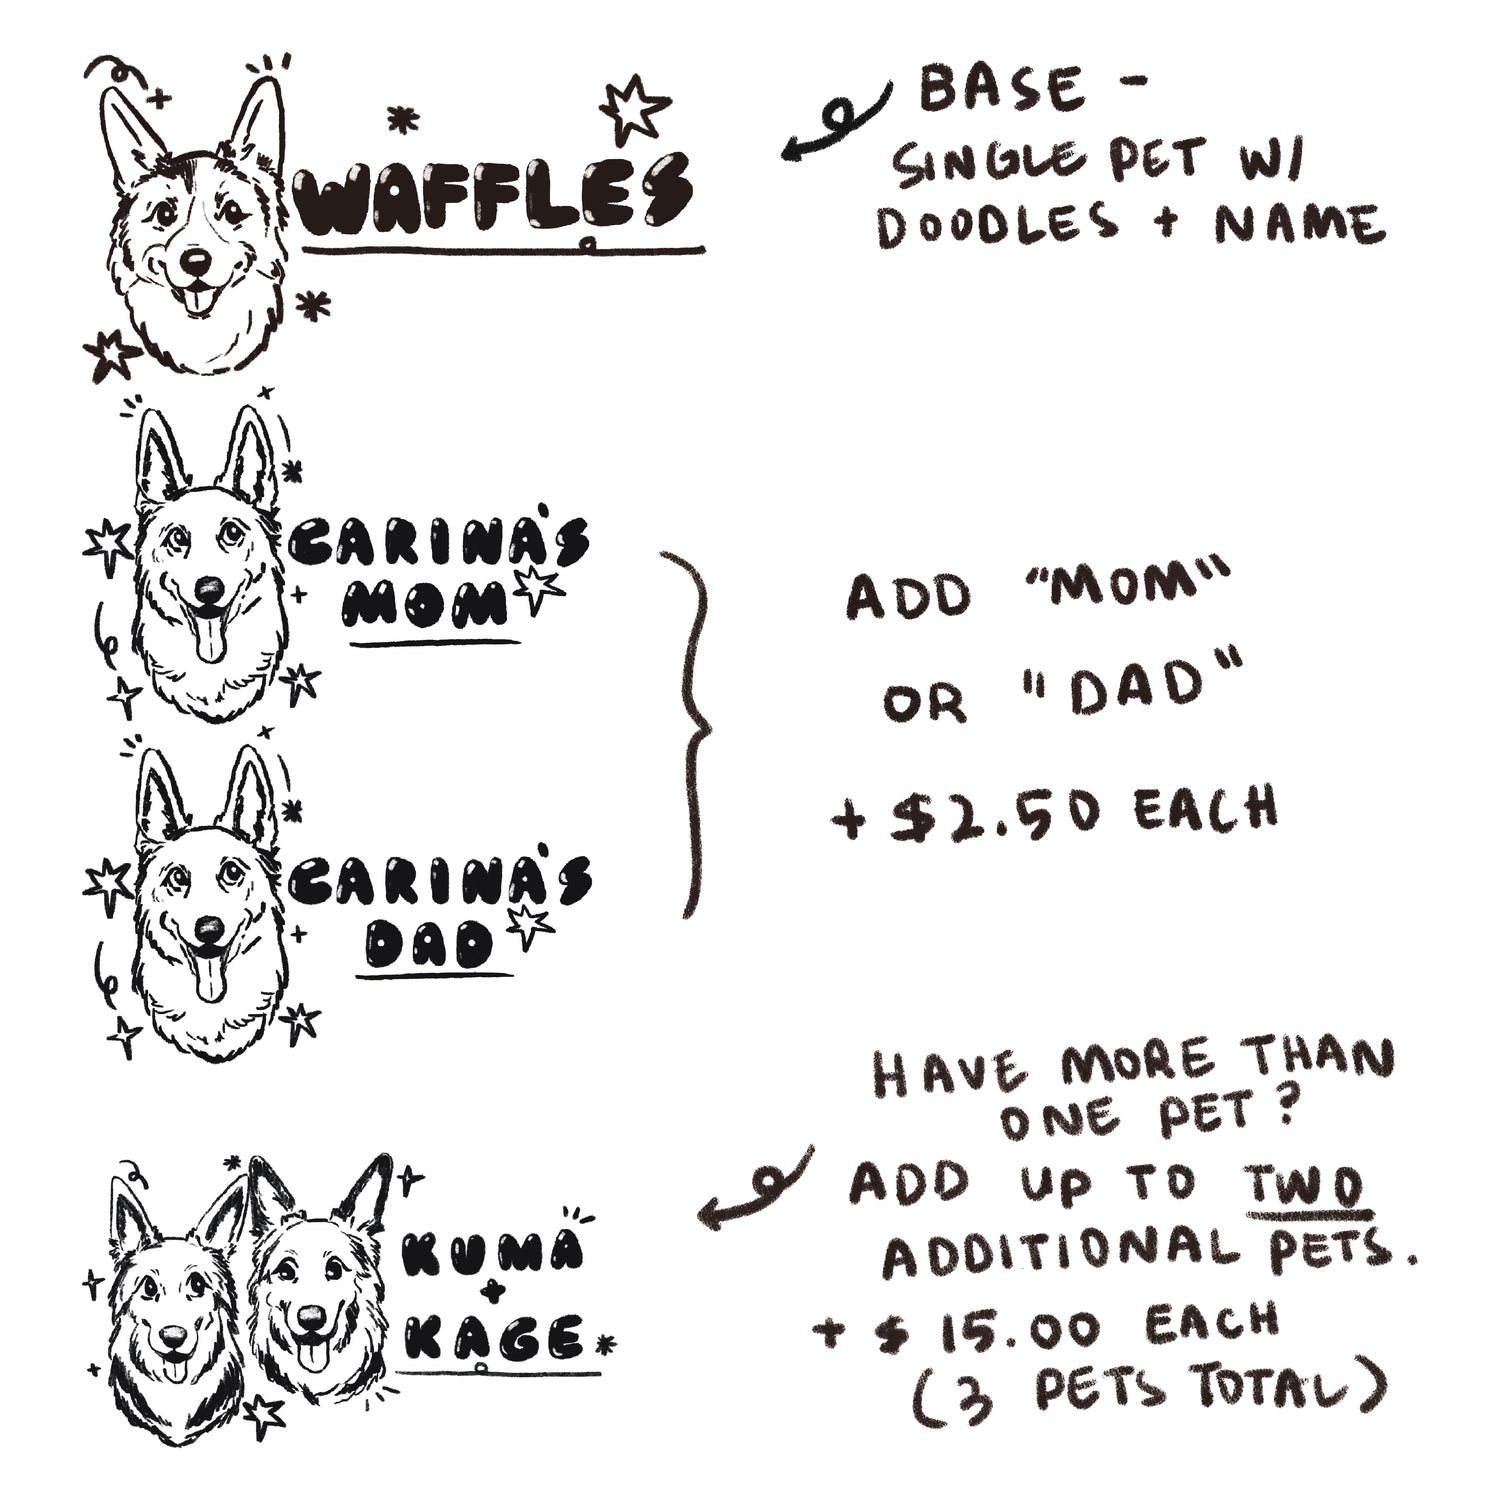 WAFFLES
BASE -
SINGLE PET W/
DOODLES + NAME
CARINA'S
MOM
CARINA'S
DAD
ADD "MOM"
OR "DAD"
+ $2.50 EACH
KUMA
+
KAGE
HAVE MORE THAN
ONE PET?
ADD UP TO TWO
ADDITIONAL PETS.
+ $15.00 EACH
(3 PETS TOTAL)